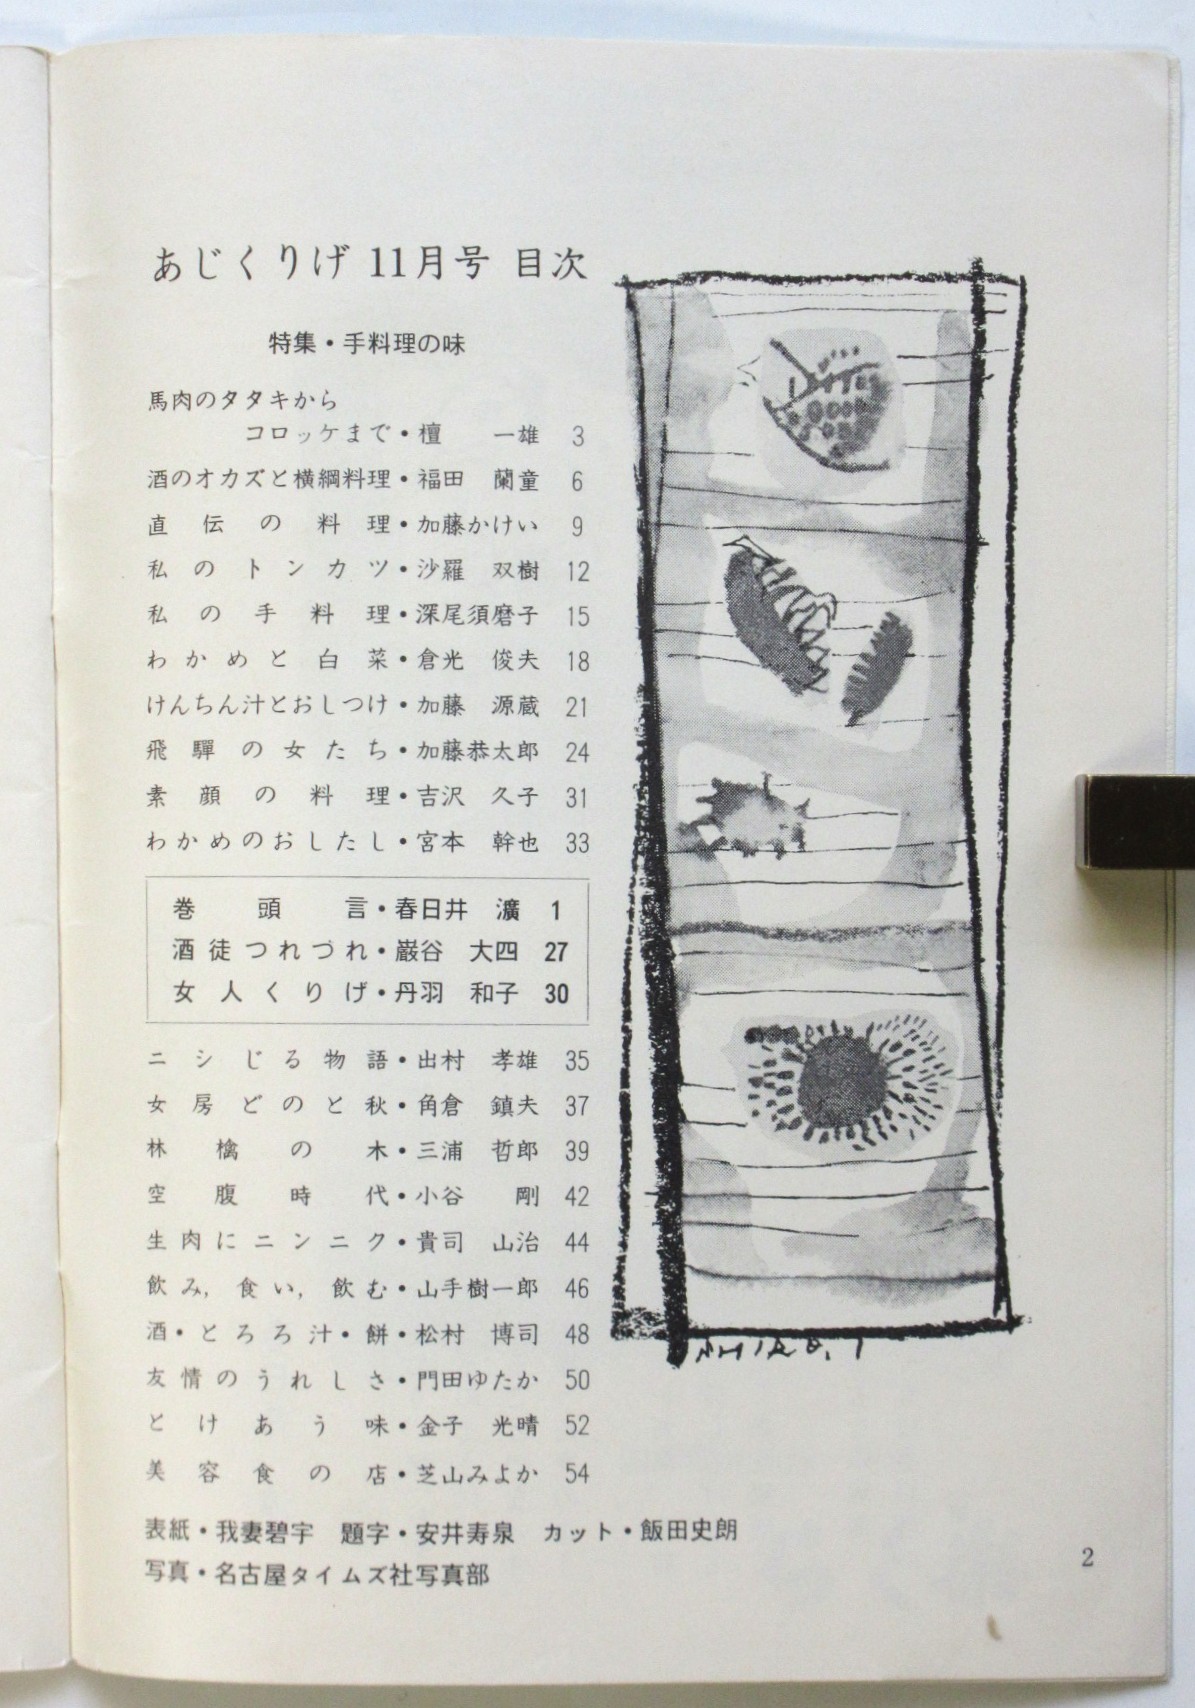 あじくりげ 11月号 目次
特集・手料理の味
馬肉のタタキから
コロッケまで・檀 一雄 3
酒のオカズと横綱料理・福田 蘭童 6
直伝の料理・加藤かけい 9
私のトンカツ・沙羅 双樹 12
私の手料理・深尾須磨子 15
わかめと白菜・倉光 俊夫 18
けんちん汁とおしつけ・加藤 源蔵 21
飛騨の女たち・加藤恭太郎 24
素顔の料理・吉沢 久子 31
わかめのおしたし・宮本 幹也 33
巻頭言・春日井 瀇 1
酒徒つれづれ・巌谷 大四 27
女人くりげ・丹羽 和子 30
ニシじる物語・出村 孝雄 35
女房どのと秋・角倉 鎮夫 37
林檎の木・三浦 哲郎 39
空腹時代・小谷 剛 42
生肉にニンニク・貴司 山治 44
飲み,食い,飲む・山手樹一郎 46
酒・とろろ汁・餅・松村 博司 48
友情のうれしさ・門田ゆたか 50
とけあう味・金子 光晴 52
美容食の店・芝山みよか 54
表紙・我妻碧宇 題字・安井寿泉 カット・飯田史朗
写真・名古屋タイムズ社写真部
2